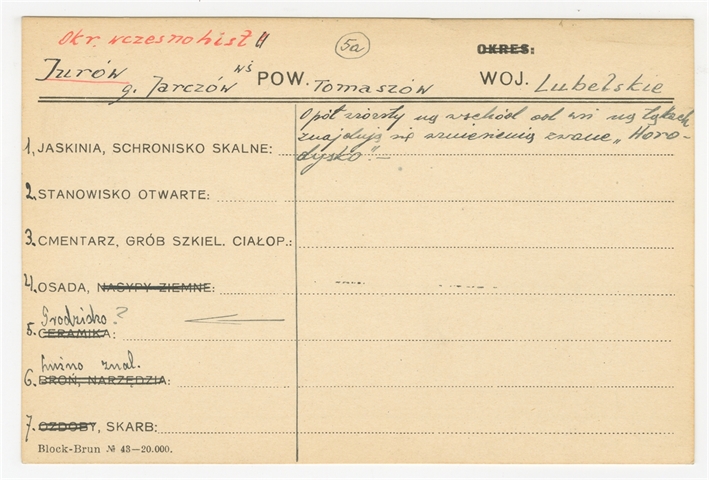 Okr. wczesnohist II
5a
OKRES:
Jurów wś POW. Tomaszów WOJ. Lubelskie
g. Jarczów
O pół wiorsty na wschód od wsi na łąkach
znajdują się wzniesienia zwane „Horo-
dysko". —
1, JASKINIA, SCHRONISKO SKALNE:
2. STANOWISKO OTWARTE:
3. CMENTARZ, GRÓB SZKIEL. CIAŁOP.:
4. OSADA, NASYPY ZIEMNE:
Grodzisko?
5. CERAMIKA:
Luźno znal.
6. BROŃ, NARZĘDZIA:
7. OZDOBY, SKARB:
Block-Brun № 43—20.000.